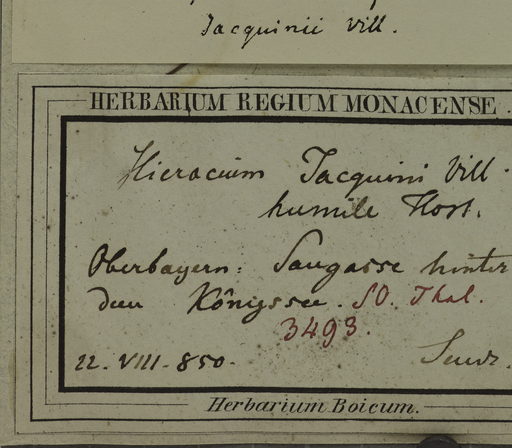 Jacquinii Vill.
HERBARIUM REGIUM MONACENSE.
Hieracium Jacquini Vill.
humile Host.
Oberbayern: Saugasse hinter
dem Königssee. SO. Thal.
3493.
22. VIII. 850.
Herbarium Boicum.